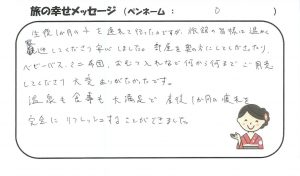 旅の幸せメッセージ（ペンネーム： O ）
生後1か月の子を連れて行ったのですが、旅館の皆様に温かく
歓迎してくださり安心しました。部屋を畳の
ベビーバス、ミニ布団、おむつ入れなど何から何までご用意
してくださり大変ありがたかったです。
温泉も食事も大満足で産後1か月の疲れを
完全にリフレッシュすることができました。